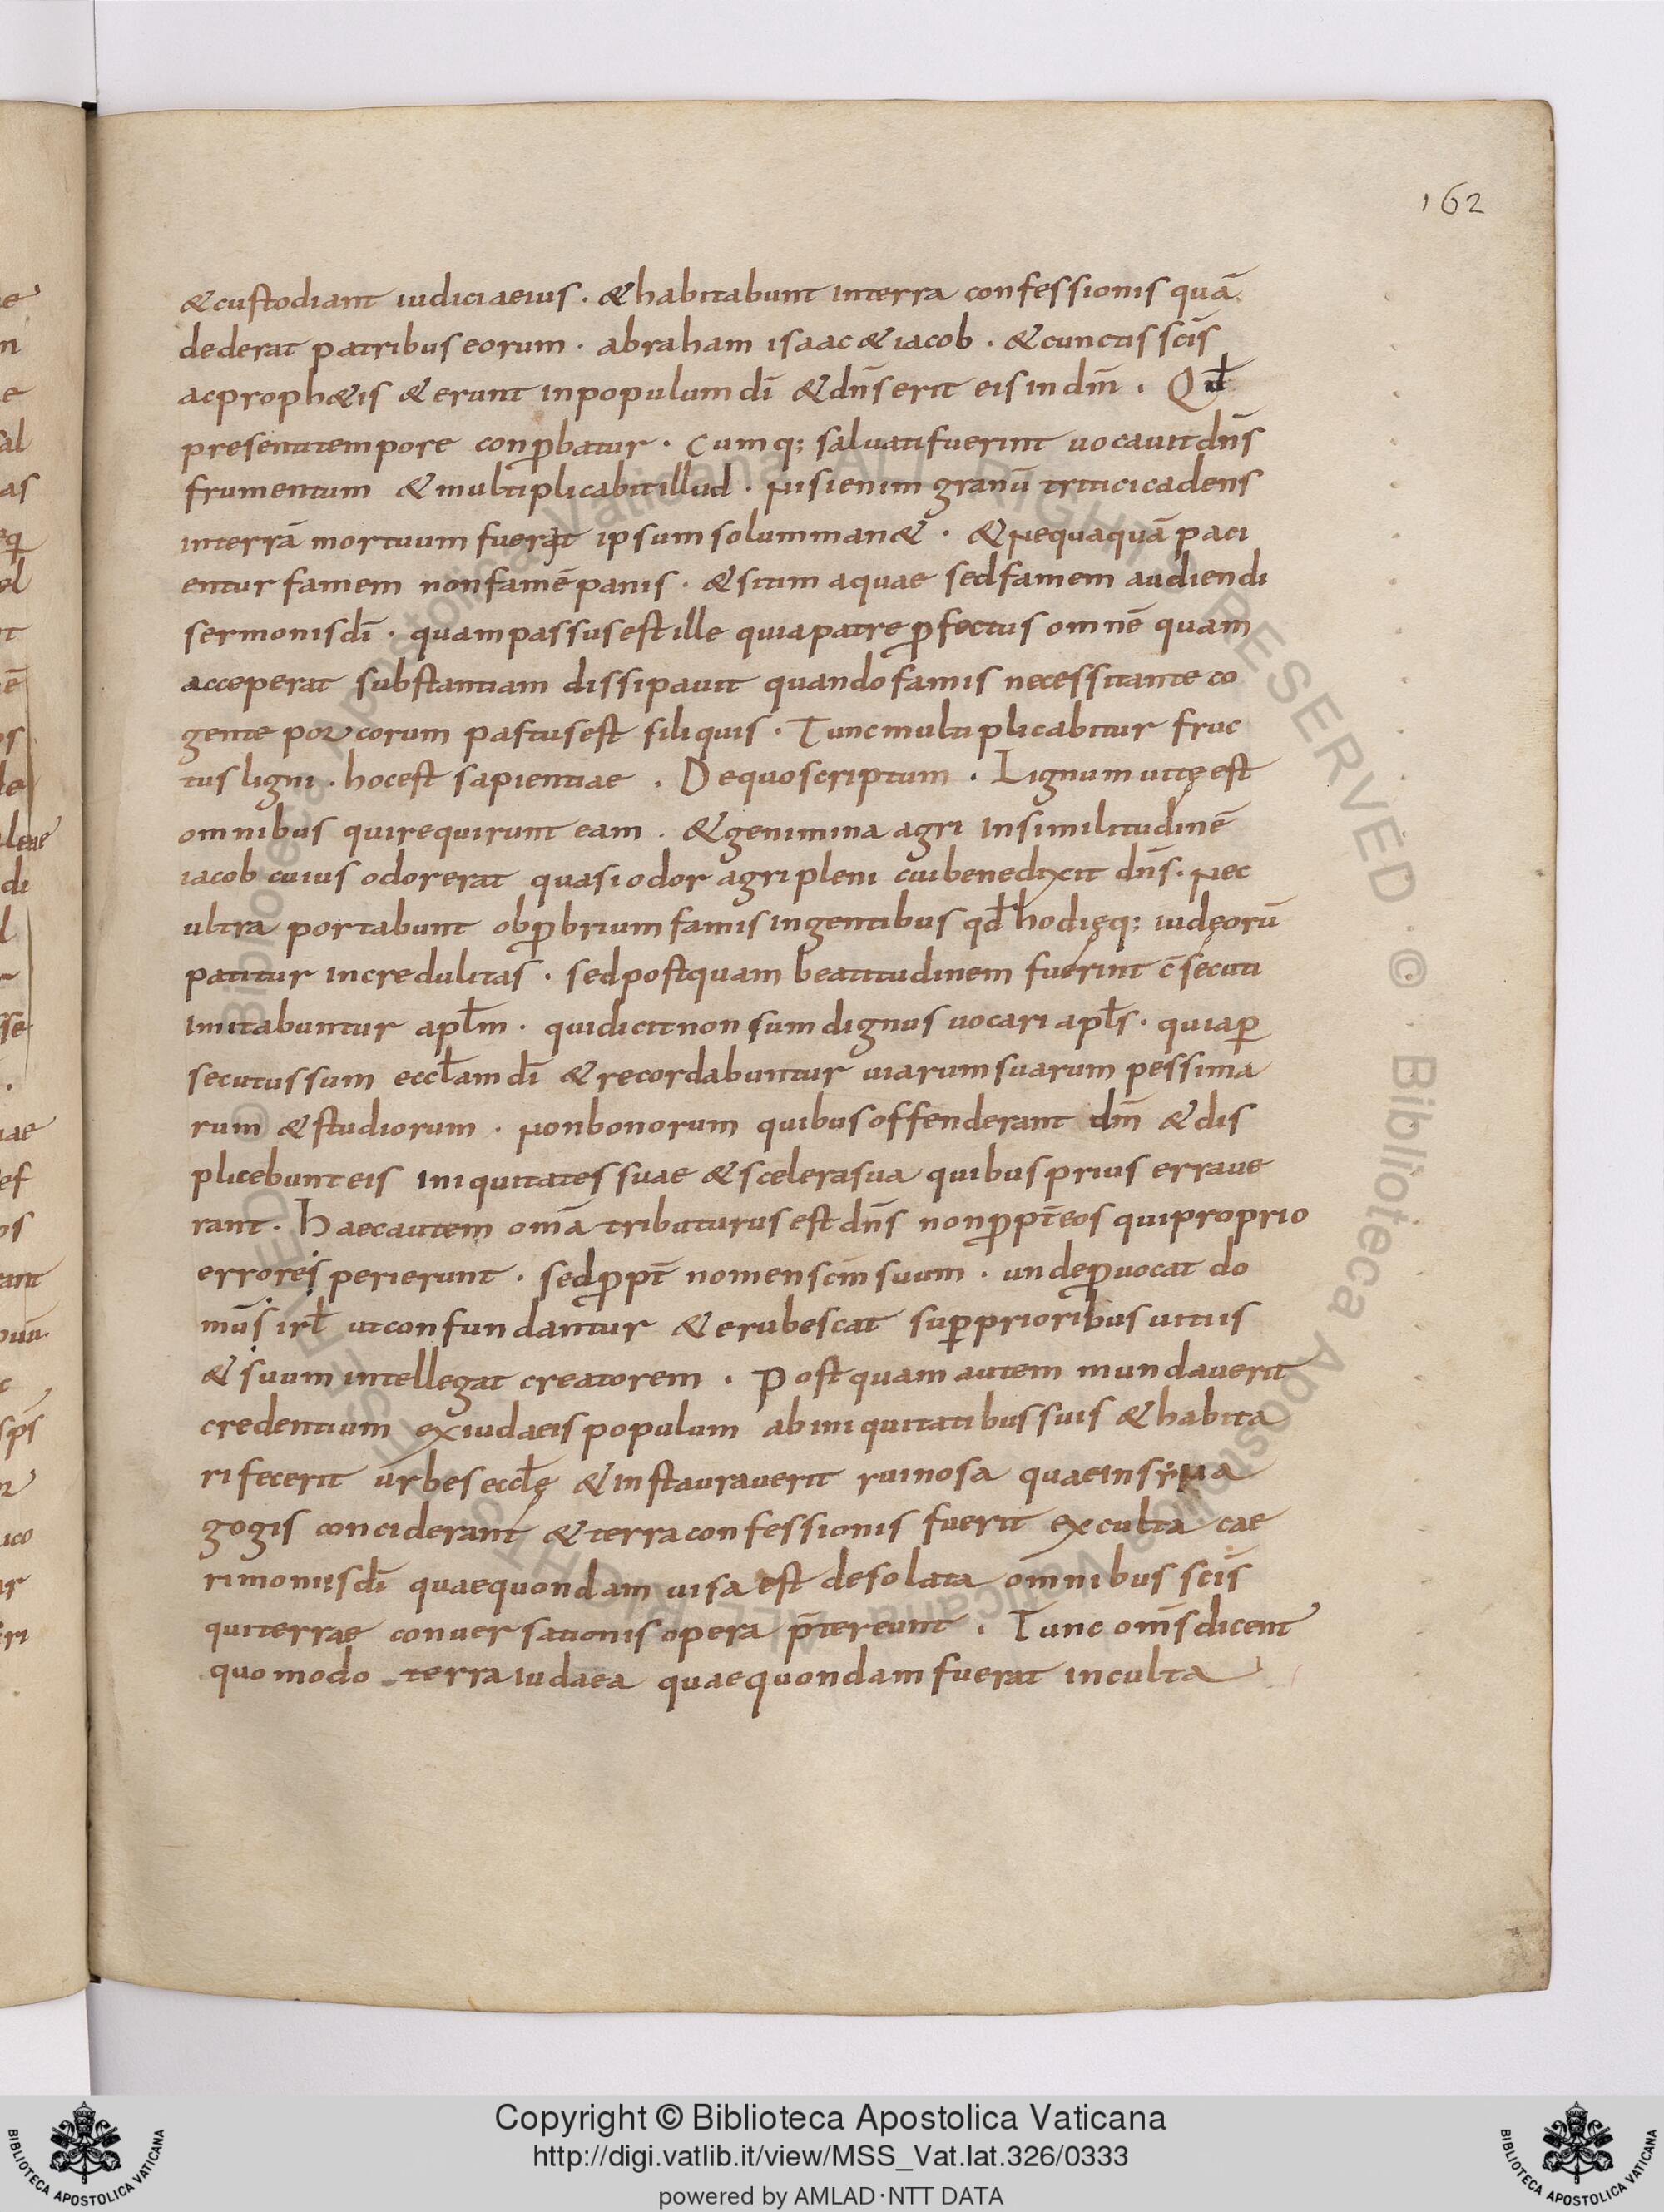 162
& custodiant iudicia eius · & habitabunt in terra confessionis quā
dederat patribus eorum · abraham isaac & iacob · & cunctis scīs
ac proph&is & erunt in populum dī & dn̄s erit eis in dm̄ · Qđ
presenti tempore conꝓbatur · Cumq; saluati fuerint uocauit dn̄s
frumentum & multiplicabit illud · Nisi enim granū tritici cadens
in terrā mortuum fuerat ipsum solum man& · & Nequaquā paci
entur famem non famē panis · & sitim aquae sed famem audiendi
sermonis dī · quam passus est ille qui a patre ꝓfectus omnē quam
acceperat substantiam dissipauit quando famis necessitate co
gente porcorum pastus est siliquis · Tunc multiplicabitur fruc
tus ligni · hoc est sapientiae · De quo scriptum · Lignum uitę est
omnibus qui requirunt eam · & genimina agri in similitudinē
iacob cuius odor erat quasi odor agri pleni cui benedixit dn̄s · Nec
ultra portabunt obꝓbrium famis in gentibus qđ hodięq; iudęorū
patitur incredulitas · sed postquam beatitudinem fuerint c̄secuti
imitabuntur apłm · qui dicit non sum dignus uocari apłs · quia ꝑ
secutus sum eccłam dī & recordabuntur uiarum suarum pessima
rum & studiorum · Non bonorum quibus offenderant dm̄ & dis
plicebunt eis iniquitates suae & scelera sua quibus prius erraue
rant · Haec autem om̄a tributurus est dn̄s non ꝓpt̄ eos qui proprio
errores perierunt · sed ꝓpt̄ nomen scm̄ suum · unde ꝓuocat do
mūs irł ut confundantur & erubescat suꝑ prioribus uitiis
& suum intellegat creatorem · Postquam autem mundauerit
credentium ex iudaeis populum ab iniquitatibus suis & habita
ri fecerit urbes eccłę & instaurauerit ruinosa quae in sina
gogis conciderant & terra confessionis fuerit exculta cae
rimoniis dī quae quondam uisa est desolata omnibus scīs
qui terrae conuersationis opera p̄tereunt · Tunc om̄s dicent
quomodo terra iudaea quae quondam fuerat inculta
Copyright © Biblioteca Apostolica Vaticana
http://digi.vatlib.it/view/MSS_Vat.lat.326/0333
powered by AMLAD·NTT DATA
BIBLIOTECA APOSTOLICA VATICANA
BIBLIOTECA APOSTOLICA VATICANA